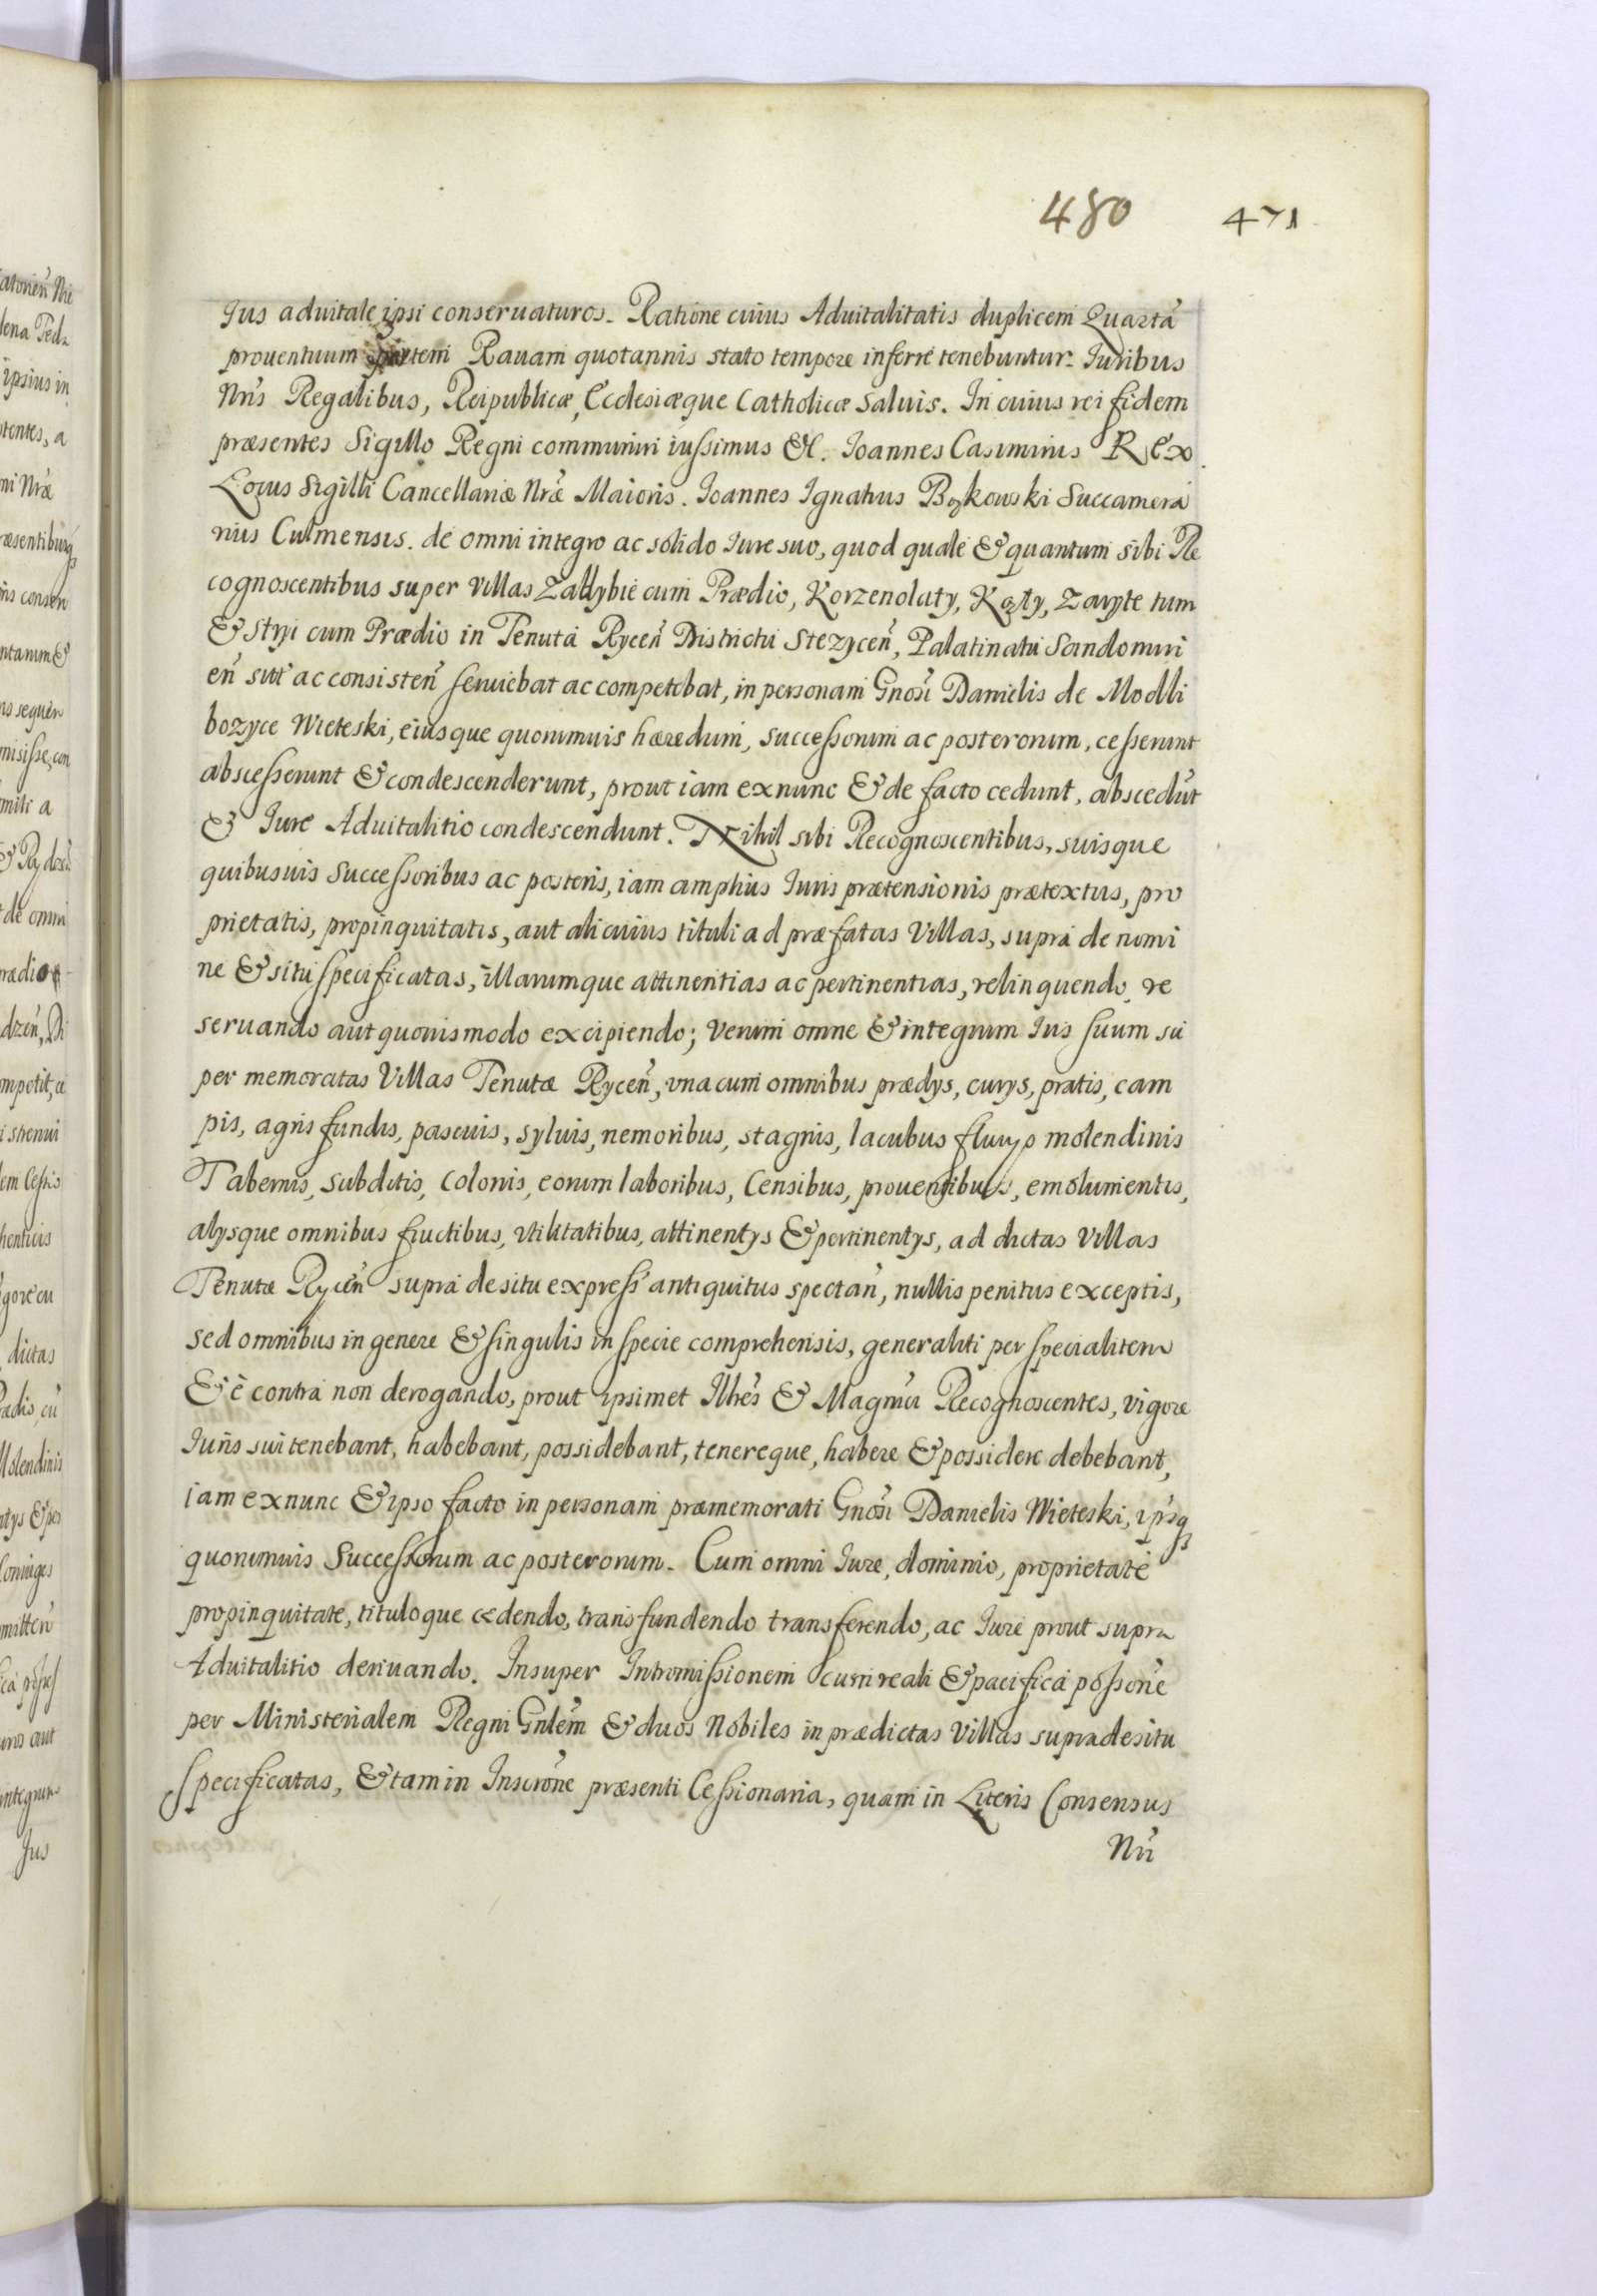 480 471
Jus aduitale ipsi conseruaturos. Ratione cuius Aduitalitatis duplicem Quartā
prouentuum partem Rauam quotannis stato tempore inferre tenebuntur. Iuribus
Nris Regalibus, Reipublicæ, Ecclesiæque Catholicæ saluis. In cuius rei fidem
præsentes Sigillo Regni communiri iussimus &c. Ioannes Casimirus Rex.
Locus Sigilli Cancellariæ Nræ Maioris. Ioannes Ignatius Bąkowski Succamera
rius Culmensis. de omni integro ac solido Iure suo, quod quale & quantum sibi Re
cognoscentibus super Villas Zallybie cum Prædio, Korzenolaty, Kąty, Zaryte tum
& Stryi cum Prædio in Tenuta Rycen̄ Districtu Stezycen̄, Palatinatu Sandomiri
en̄ sit̄ ac consisten̄ seruiebat ac competebat, in personam Gnosi Danielis de Modli
bozyce Wieteski, eiusque quorumuis hæredum, successorum ac posterorum, cesserunt
abscesserunt & condescenderunt, prout iam exnunc & de facto cedunt, abscedūt
& Iure Aduitalitio condescendunt. Nihil sibi Recognoscentibus, suisque
quibusuis Successoribus ac posteris, iam amplius Iuris prætensionis prætextus, pro
prietatis, propinquitatis, aut alicuius tituli ad præfatas Villas, supra de nomi
ne & situ specificatas, illarumque attinentias ac pertinentias, relinquendo, re
seruando aut quouismodo excipiendo; verum omne & integrum Ius suum su
per memoratas Villas Tenutæ Rycen̄, vna cum omnibus prædys, curys, pratis, cam
pis, agris fundis, pascuis, syluis, nemoribus, stagnis, lacubus fluuys molendinis
Tabernis, subditis, colonis, eorum laboribus, Censibus, prouentibus, emolumentis,
alysque omnibus fructibus, vtilitatibus, attinentys & pertinentys, ad dictas Villas
Tenutæ Rycen̄ supra de situ express̄ antiquitus spectan̄, nullis penitus exceptis,
sed omnibus in genere & singulis in specie comprehensis, generaliti per specialitem
& è contra non derogando, prout ipsimet Illres & Magnci Recognoscentes, vigore
Iuris sui tenebant, habebant, possidebant, tenereque, habere & possidere debebant,
iam exnunc & ipso facto in personam præmemorati Gnosi Danielis Wieteski, ipsq
quorumuis Successorum ac posterorum. Cum omni Iure, dominio, proprietate
propinquitate, tituloque cedendo, transfundendo transferendo, ac Iure prout supra
Aduitalitio deriuando. Insuper Intromissionem cum reali & pacifica possone
per Ministerialem Regni Gnlem & duos Nobiles in prædictas Villas supra de situ
specificatas, & tam in Inscrone præsenti Cessionaria, quam in Literis Consensus
Nri